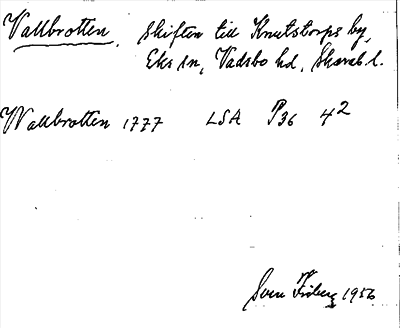 Vallbrotten, skiften till Knutstorps by,
Eks sn, Vadsbo hd, Skarab. l.
Wallbrotten 1777 LSA P36 4²
Sven Friberg 1956